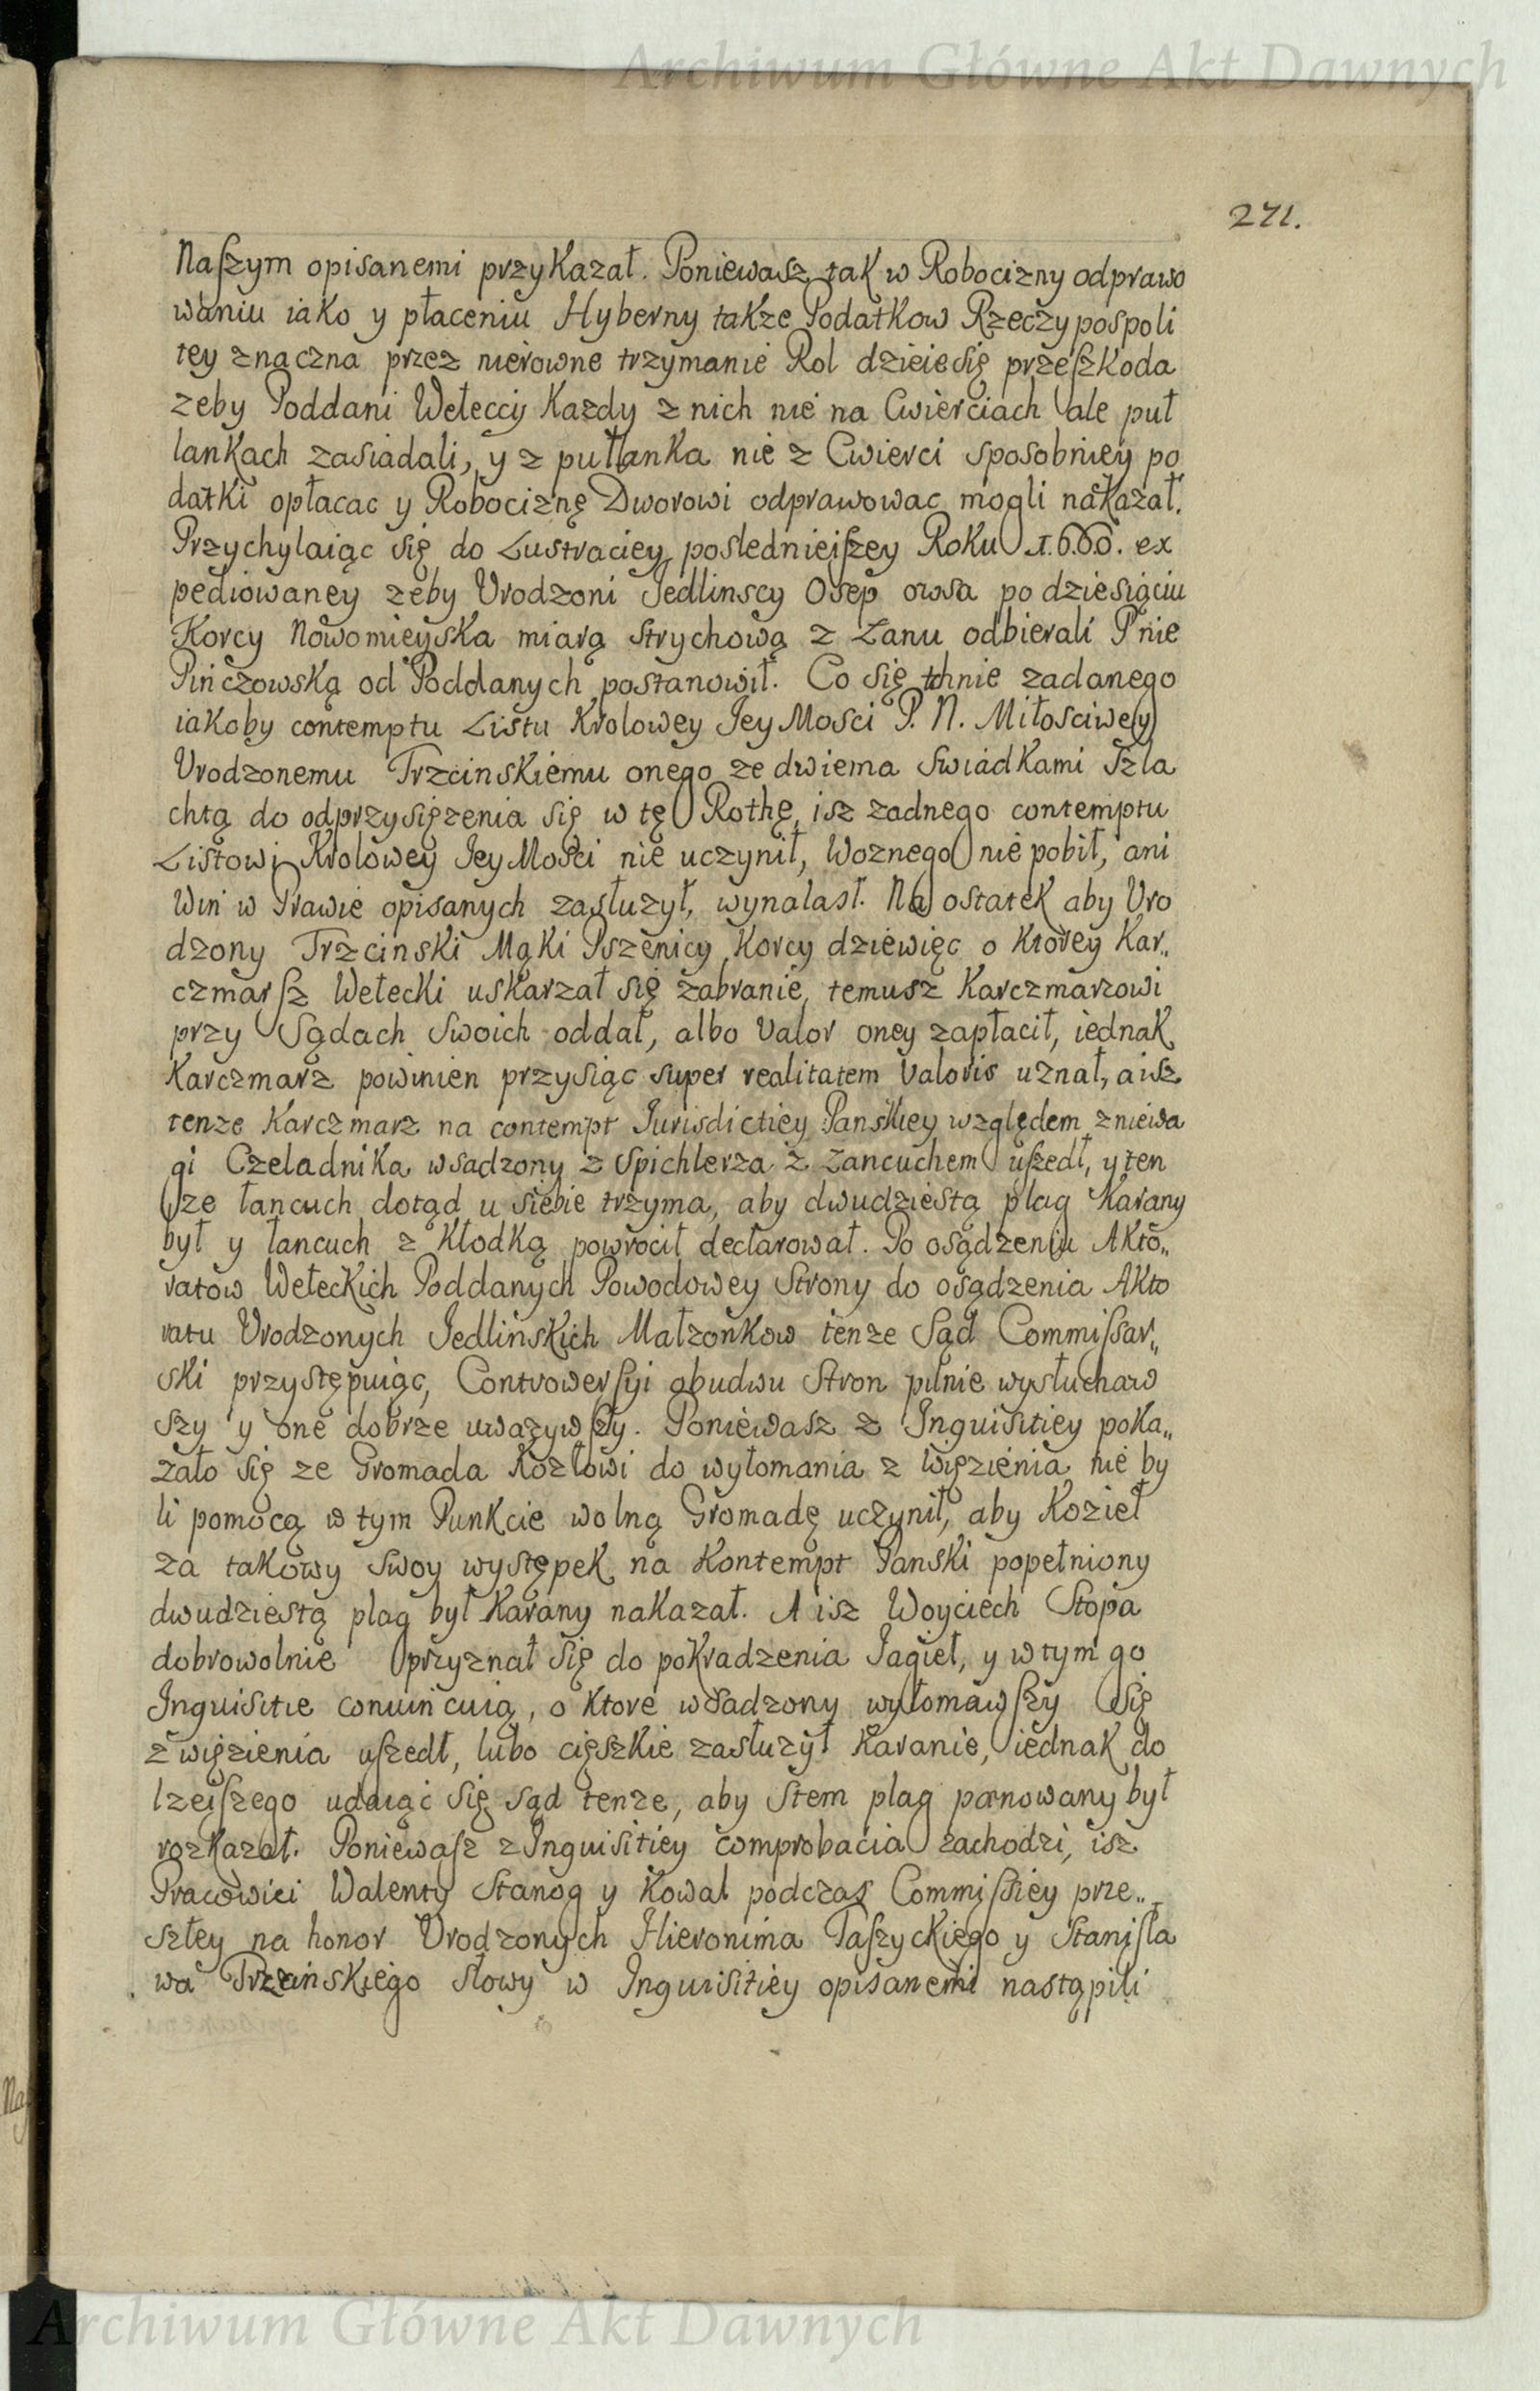 Archiwum Główne Akt Dawnych
271.
Naſzym opisanemi przykazał. Poniewasz tak w Robocizny odprawo
waniu iako y płaceniu Hyberny także Podatkow Rzeczypospoli
tey znaczna przez nierowne trzymanie Rol dzieie się przeſzkoda
zeby Poddani Wełeccy Kazdy z nich nie na Cwierciach ale puł
lankach zasiadali, y z pułlanka nie z Cwierci sposobniey po
datki opłacac y Robociznę Dworowi odprawowac mogli nakazał.
Przychylaiąc się do Lustraciey posledniejſzey Roku 1.6.6.0. ex
pediowaney zeby Urodzoni Jedlinscy Osep owsa po dziesiąciu
Korcy Nowomieyska miarą strychową z Łanu odbierali P nie
Pińczowską od Poddanych postanowił. Co się tchnie zadanego
iakoby contemptu Listu Krolowey Jey Mosci P. N. Miłosciwey
Urodzonemu Trzcinskiemu onego ze dwiema Swiadkami Szla
chtą do odprzysięzenia się w tę Rothę, isz zadnego contemptu
Listowi Krolowey Jey Mosci nie uczynił, Woznego nie pobił, ani
Win w Prawie opisanych zasłuzył, wynalasł. Na ostatek aby Uro
dzony Trzcinski Mąki Pszenicy Korcy dziewięc o ktorey Kar„
czmarſz Wełecki uskarzał się zabranie, temusz Karczmarzowi
przy Sądach Swoich oddał, albo valor oney zapłacił, iednak
Karczmarz powinien przysiąc super realitatem valoris uznał, a isz
tenze Karczmarz na contempt Jurisdictiey Panskiey względem zniewa
gi Czeladnika wsadzony z Spichlerza z Łancuchem uſzedł, y ten
ze łancuch dotąd u siebie trzyma, aby dwudziestą plag Karany
był y łancuch z Kłodką powrocił declarował. Po osądzeniu Akto„
ratow Wełeckich Poddanych Powodowey Strony do osądzenia Akto
ratu Urodzonych Jedlinskich Małzonkow tenze Sąd Commiſsar„
ski przystępuiąc, Controwerſyi obudwu Stron pilnie wysłuchaw
szy y one dobrze uwazywſzy. Poniewasz z Inquisitiey poka„
zało się ze Gromada Kozłowi do wyłomania z więzienia nie by
li pomocą w tym Punkcie wolną Gromadę uczynił, aby Kozieł
za takowy Swoy występek na Kontempt Panski popełniony
dwudziestą plag był Karany nakazał. A isz Woyciech Stopa
dobrowolnie przyznał się do pokradzenia Jagieł, y w tym go
Inquisitie conuincuią, o ktore wsadzony wyłomawſzy się
z więzienia uſzedł, lubo cięszkie zasłuzył Karanie, iednak do
lzeiſzego udaiąc się sąd tenze, aby stem plag pœnowany był
rozkazał. Poniewaſz z Inquisitiey comprobacia zachodzi, isz
Pracowici Walenty Stanog y Kowal podczas Commiſsiey prze„
szłey na honor Urodzonych Hieronima Taſzyckiego y Stanisła
wa Trzcinskiego słowy w Inquisitiey opisanemi nastąpili
Archiwum Główne Akt Dawnych